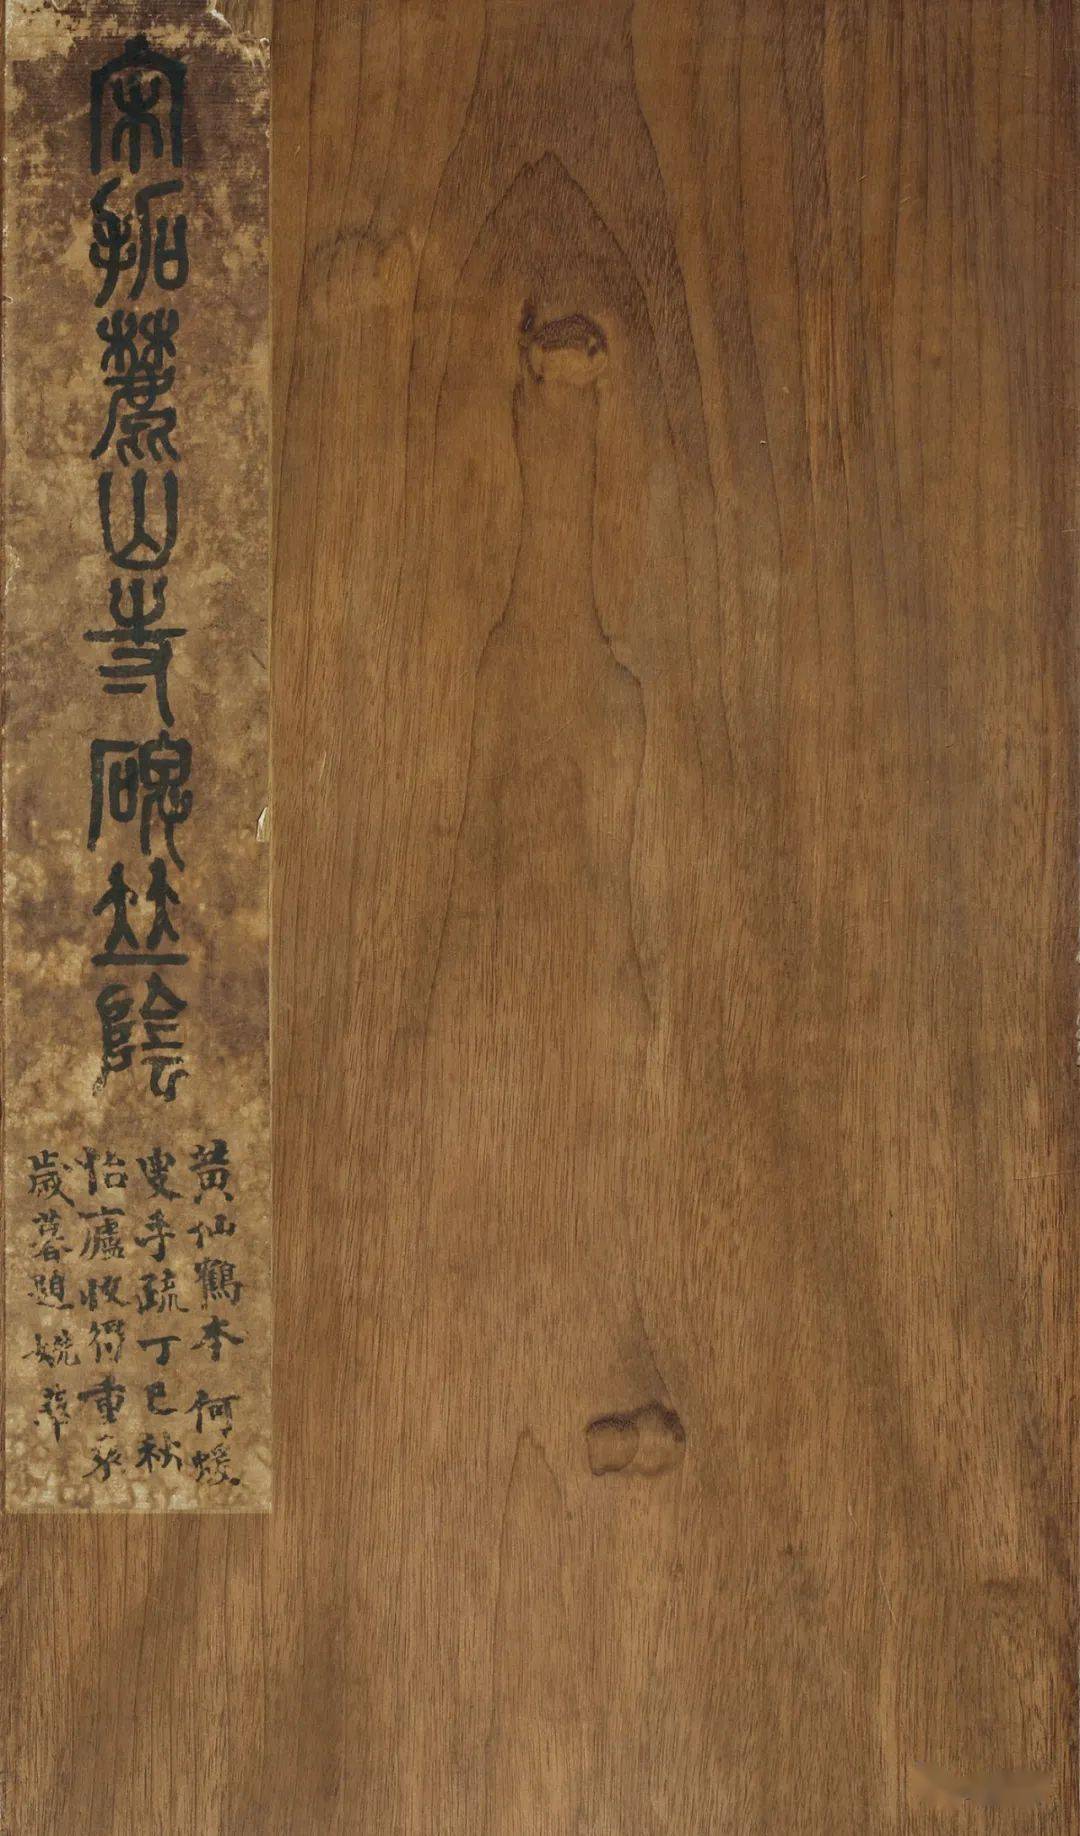 宋拓麓山寺碑並陰
黄仙鶴本 何蝯
叟手疏 丁巳秋
怡廬收得重裝
歲暮題 姚華